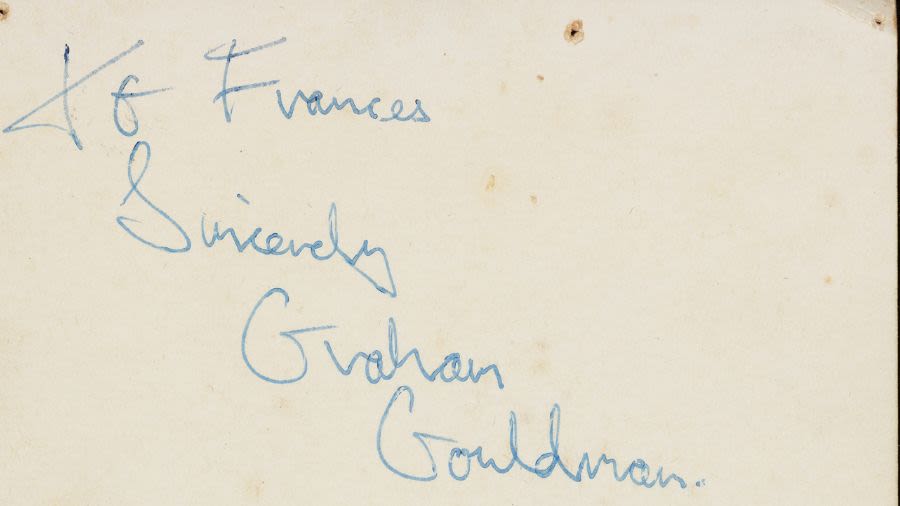 To Frances
Sincerely
Graham
Gouldman.